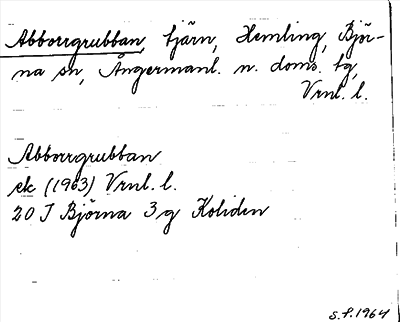 Abborrgrubban, tjärn, Hemling, Björ-
na sn, Ångermanl. n. doms. tg,
Vrnl. l.
Abborrgrubban
ek (1963) Vrnl. l.
20 J Björna 3 g Koliden
S. f. 1964